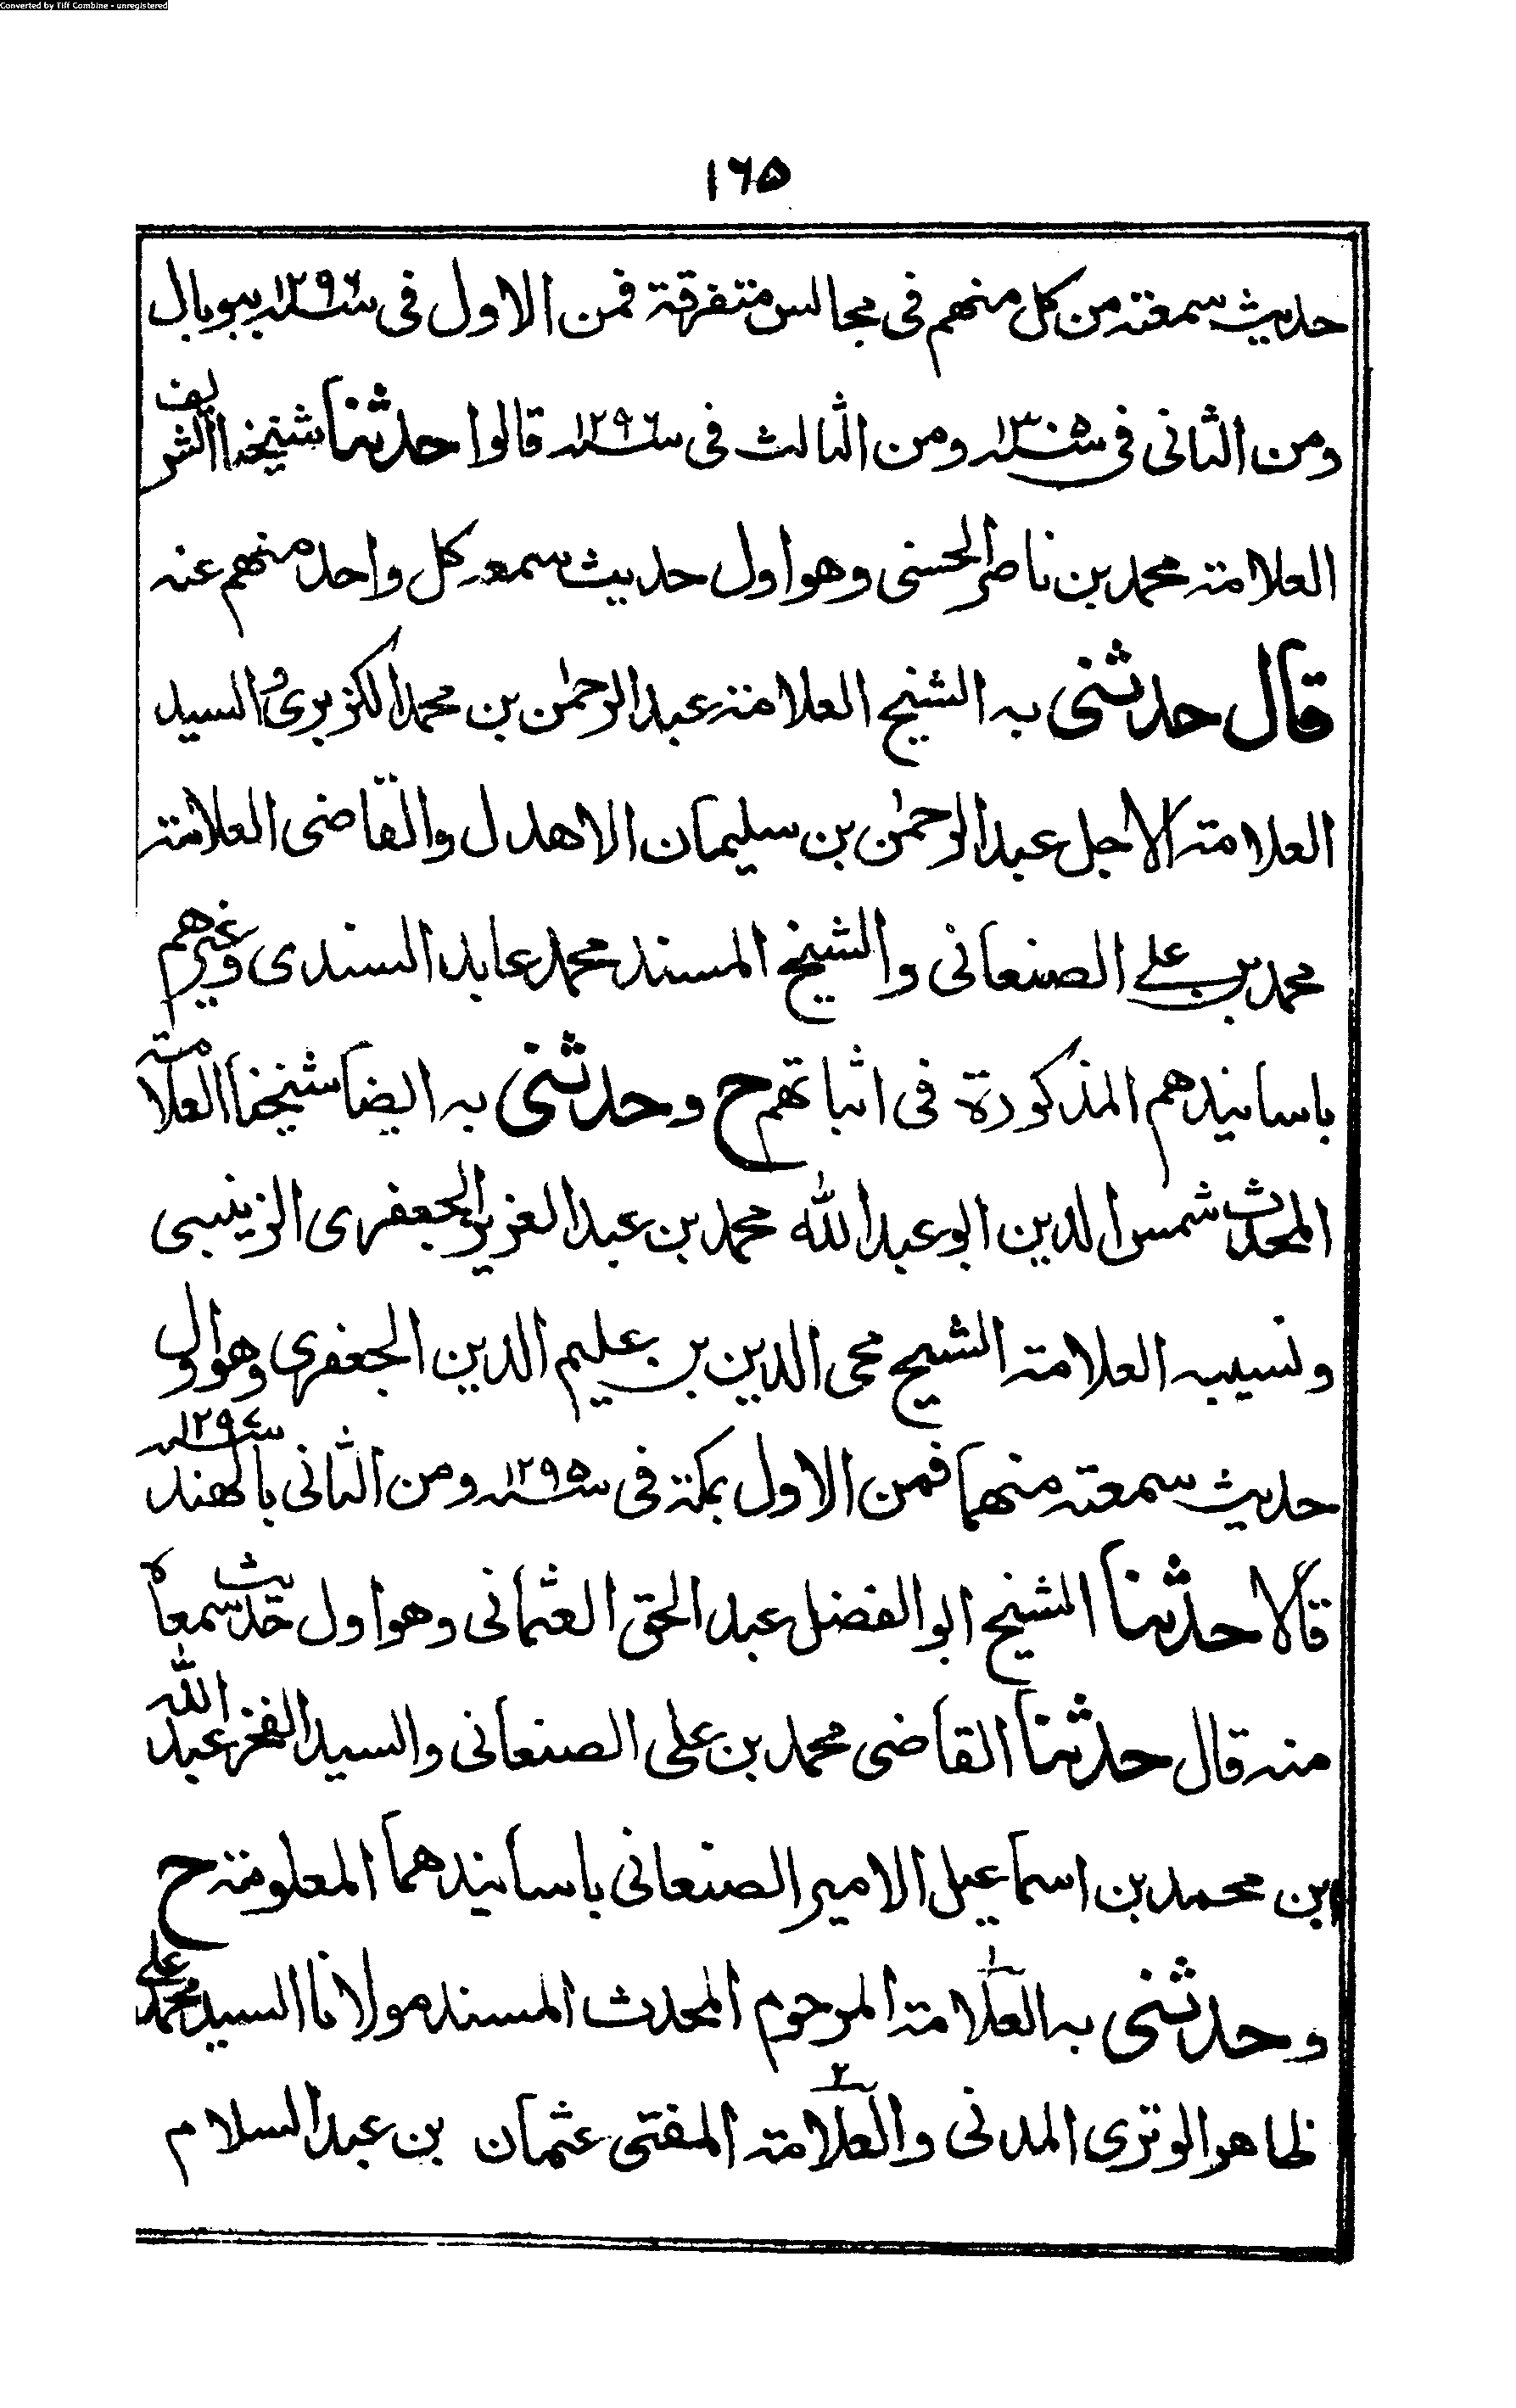 Converted by Tiff Combine - unregistered
۱۶۵
حديث سمعته من كل منهم فى مجالس متفرقة فمن الاول فى سنه ۱۲۹۶ ببوبال
ومن الثانى فى سنه ۱۳۰۵ ومن الثالث فى سنه ۱۲۹۶ قالوا حدثنا شيخنا الشريف
العلامة محمد بن ناصر الحسنى وهو اول حديث سمعه كل واحد منهم عنه
قال حدثنى به الشيخ العلامة عبد الرحمٰن بن محمد الكزبرى و السيد
العلامة الاجل عبد الرحمٰن بن سليمان الاهدل والقاضى العلامة
محمد بن على الصنعانى والشيخ المسند محمد عابد السندى وغيرهم
باسانيدهم المذكورة فى اثباتهم ح وحدثنى به ايضا شيخنا العلامة
المحدث شمس الدين ابو عبد الله محمد بن عبد العزيز الجعفرى الزينبى
ونسيبه العلامة الشيخ محى الدين بن عليم الدين الجعفرى وهو اول
حديث سمعته منهما فمن الاول بمكة فى سنه ۱۲۹۵ ومن الثانى بالهند سنه ۱۲۹۷
قالا حدثنا الشيخ ابو الفضل عبد الحق العثمانى وهو اول حديث سمعاه
منه قال حدثنا القاضى محمد بن على الصنعانى والسيد الفخر عبد الله
ابن محمد بن اسماعيل الامير الصنعانى باسانيدهما المعلومة ح
وحدثنى به العلامة المرحوم المحدث المسند مولانا السيد محمد على
ظاهر الوترى المدنى والعلامة المفتى عثمان بن عبد السلام